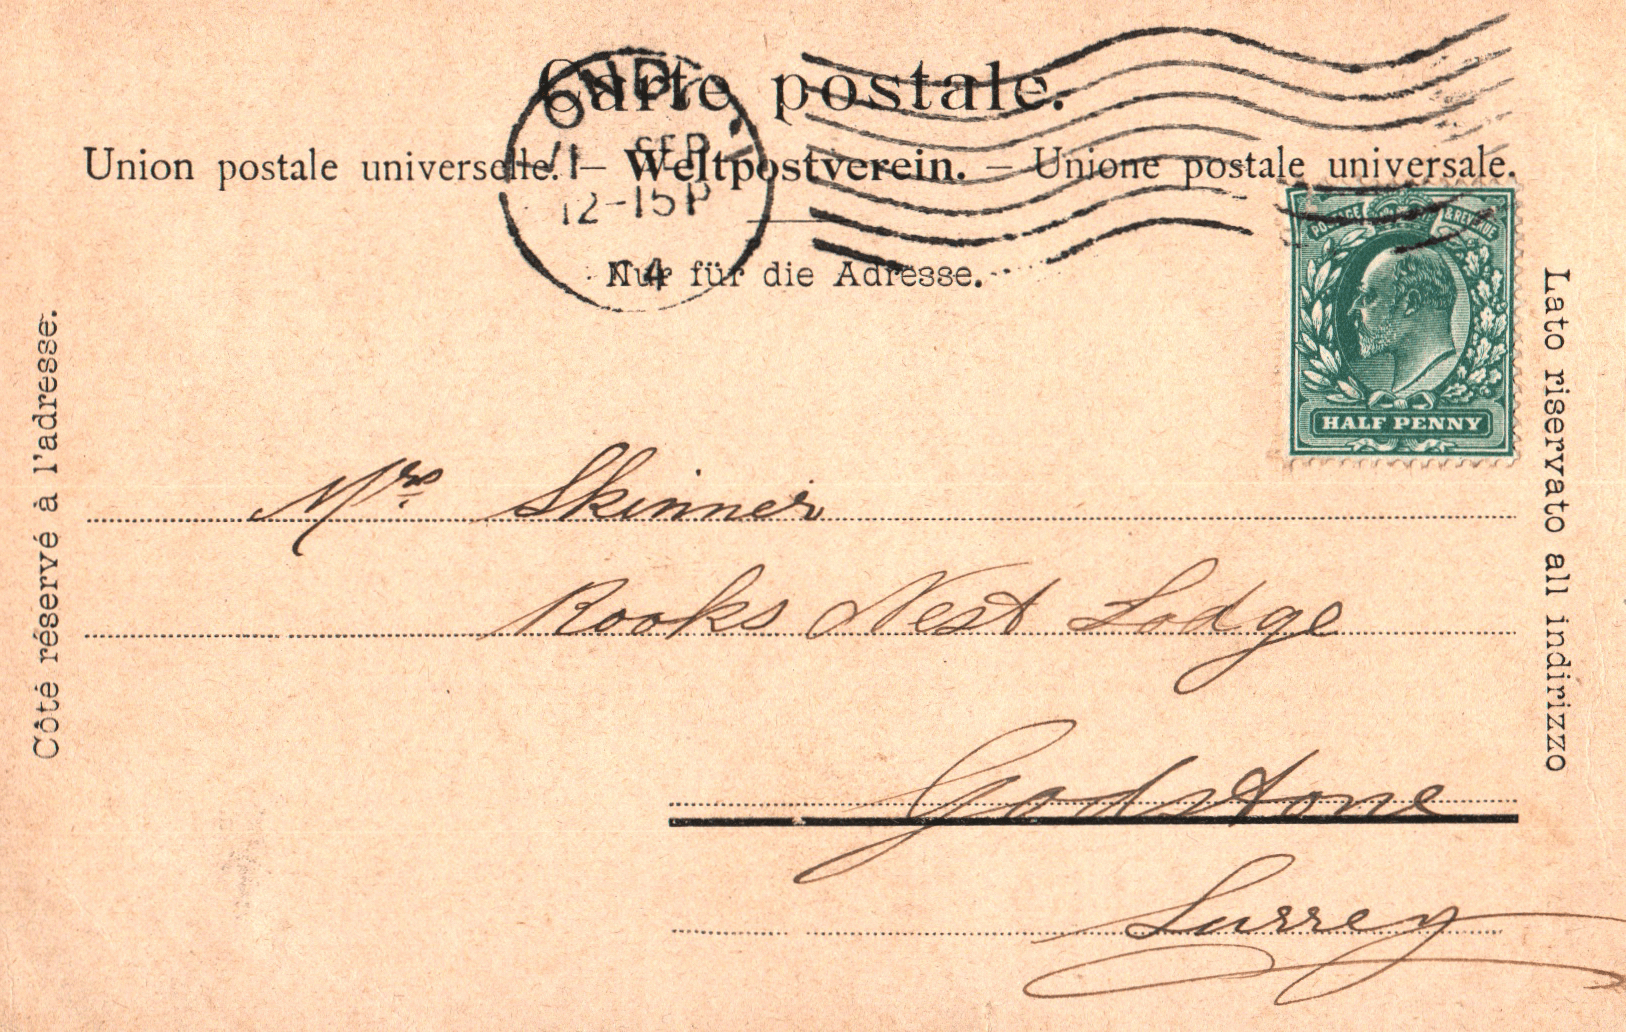 Carte postale.
Union postale universelle. — Weltpostverein. — Unione postale universale.
Nur für die Adresse.
SEP
12-15 P
04
POSTAGE & REVENUE
HALF PENNY
Côté réservé à l'adresse.
Lato riservato all indirizzo
Mrs Skinner
Rooks Nest Lodge
Godstone
Surrey